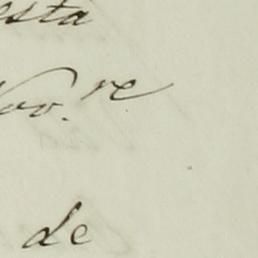 esta
Nov.re
de